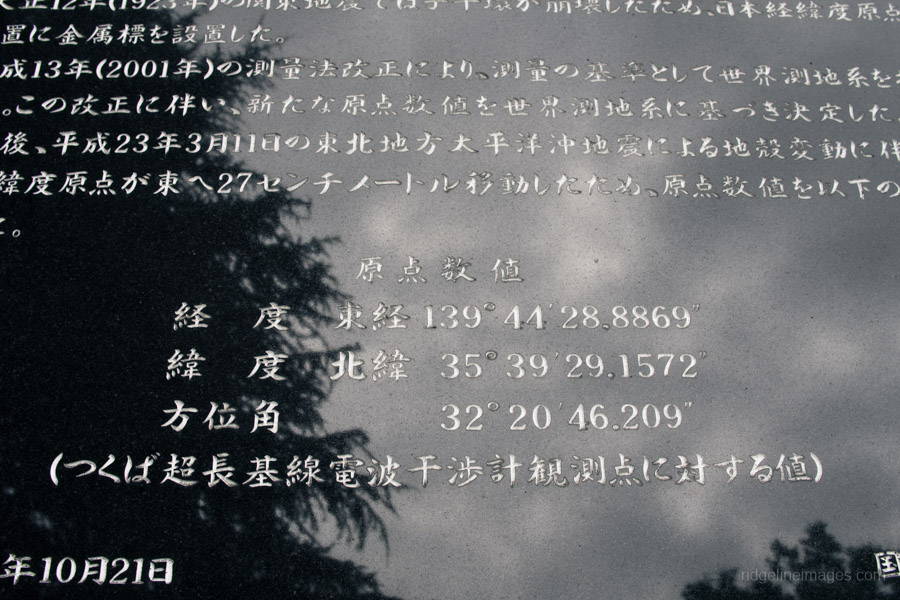 大正12年(1923年)の関東地震では子午環が崩壊したため、日本経緯度原点
置に金属標を設置した。
成13年(2001年)の測量法改正により、測量の基準として世界測地系を
。この改正に伴い、新たな原点数値を世界測地系に基づき決定した。
後、平成23年3月11日の東北地方太平洋沖地震による地殻変動に伴
緯度原点が東へ27センチメートル移動したため、原点数値を以下の
。
原点数値
経 度 東経 139°44′28.8869″
緯 度 北緯 35°39′29.1572″
方位角 32°20′46.209″
(つくば超長基線電波干渉計観測点に対する値)
年10月21日 国
ridgelineimages.com